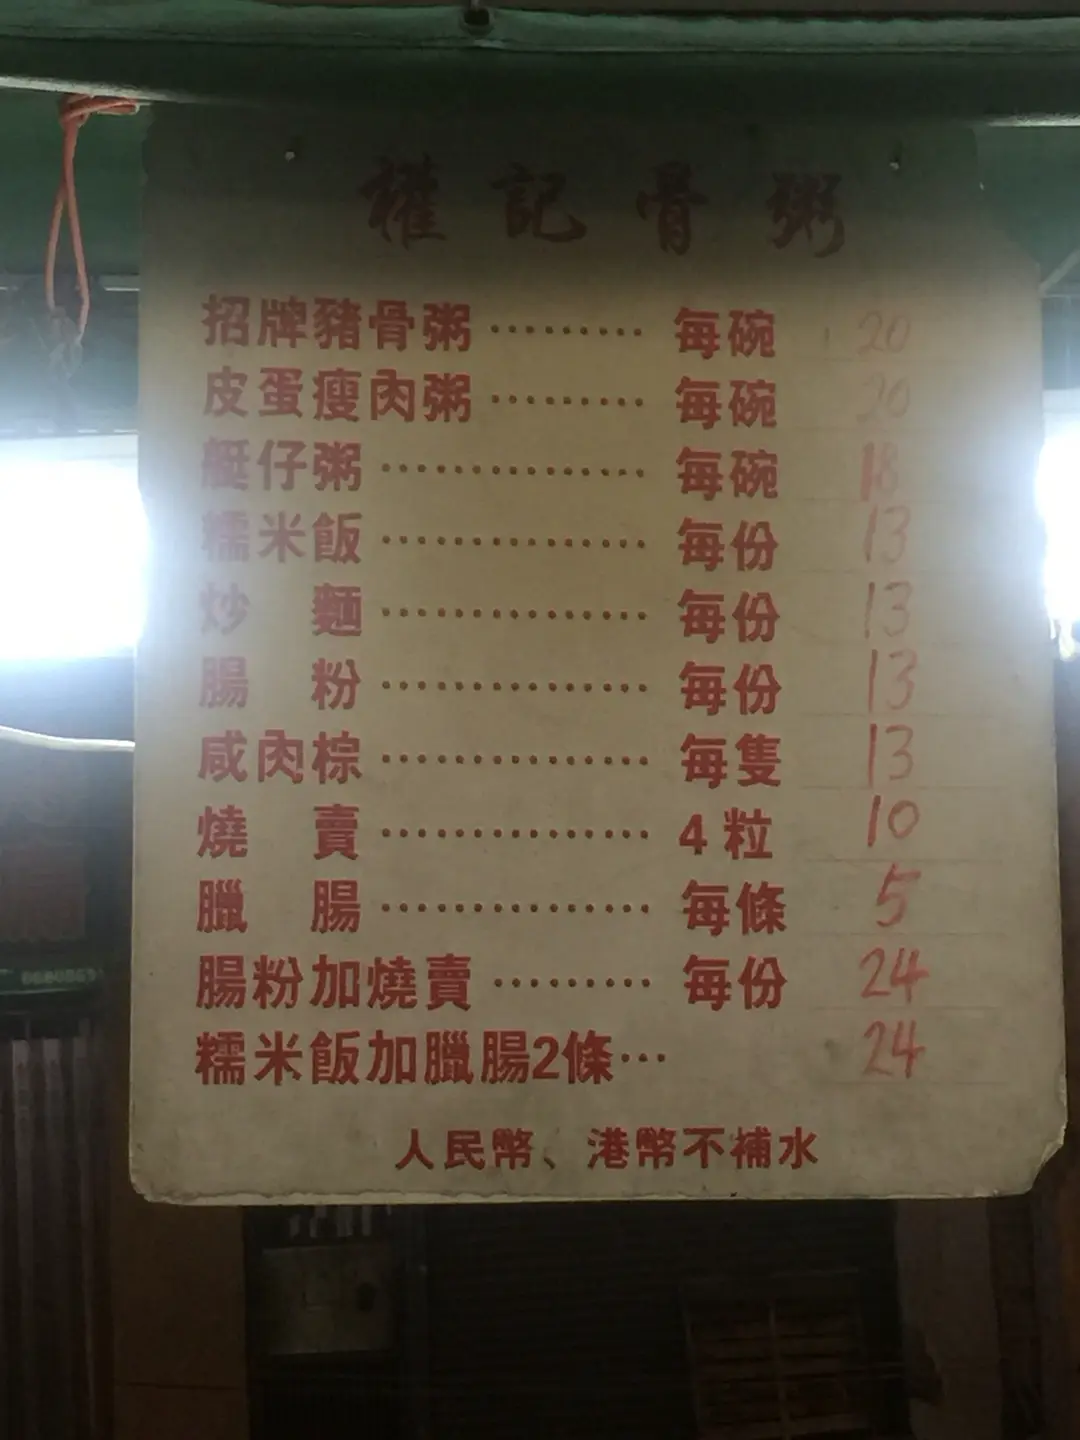 權記骨粥
招牌豬骨粥……… 每碗 20
皮蛋瘦肉粥……… 每碗 20
艇仔粥…………… 每碗 18
糯米飯…………… 每份 13
炒 麵…………… 每份 13
腸 粉…………… 每份 13
咸肉棕…………… 每隻 13
燒 賣…………… 4粒 10
臘 腸…………… 每條 5
腸粉加燒賣……… 每份 24
糯米飯加臘腸2條… 24
人民幣、港幣不補水